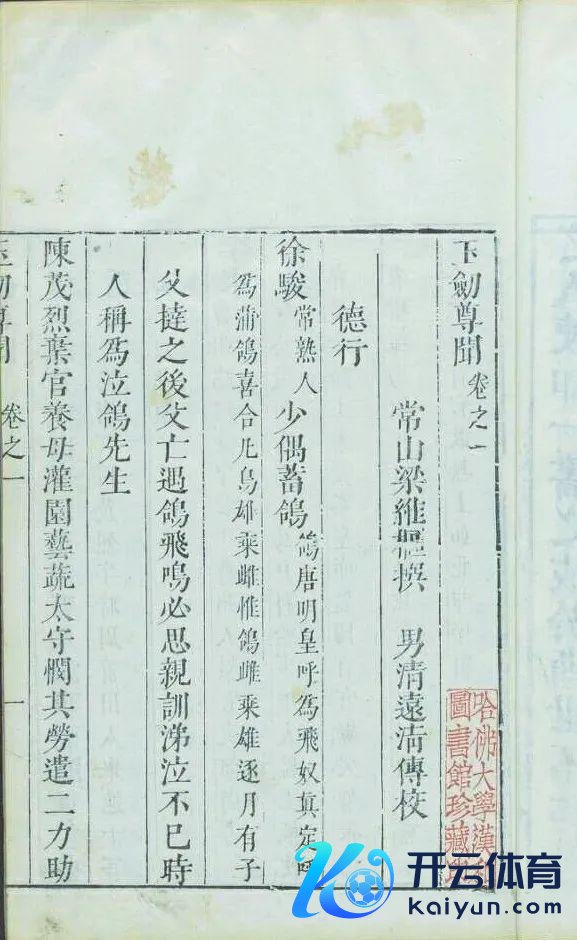 玉劒尊聞 卷之一
常山梁維樞撰 男清遠清傳校
德行
徐駿 常熟人 少偶蓄鴿 鴿唐明皇呼爲飛奴眞定呼
爲蒲鴿喜合凡鳥雄乘雌惟鴿雌乘雄逐月有子
父撻之後父亡遇鴿飛鳴必思親訓涕泣不已時
人稱爲泣鴿先生
陳茂烈棄官養母灌園藝蔬太守憫其勞遣二力助
玉劒尊聞 卷之一 一
哈佛大學漢和
圖書館珍藏印
开云体育
kaiyun.com